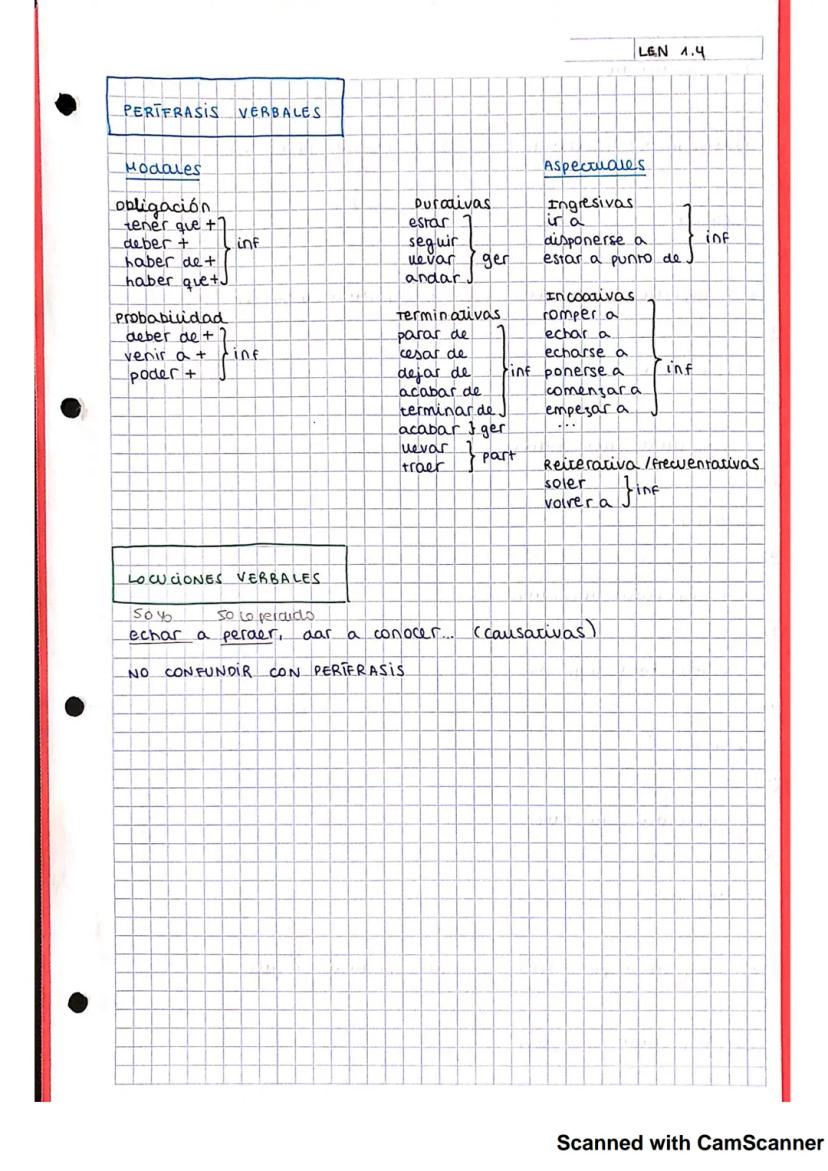 LEN 1.4
PERÍFRASIS VERBALES
Modales
Obligación
tener que +
deber +
haber de +
haber que +
inf
Probabilidad
deber de +
venir a +
poder +
inf
Aspectuales
Durativas
estar
seguir
llevar
andar
ger
Terminativas
parar de
cesar de
dejar de
acabar de
terminar de
inf
acabar } ger
llevar
traer
part
Ingresivas
ir a
disponerse a
estar a punto de
inf
Incoativas
romper a
echar a
echarse a
ponerse a
comenzar a
empezar a
...
inf
Reiterativa / Frecuentativas
soler
volver a
inf
LOCUCIONES VERBALES
echar a perder, dar a conocer... (causativas)
NO CONFUNDIR CON PERÍFRASIS
Scanned with CamScanner